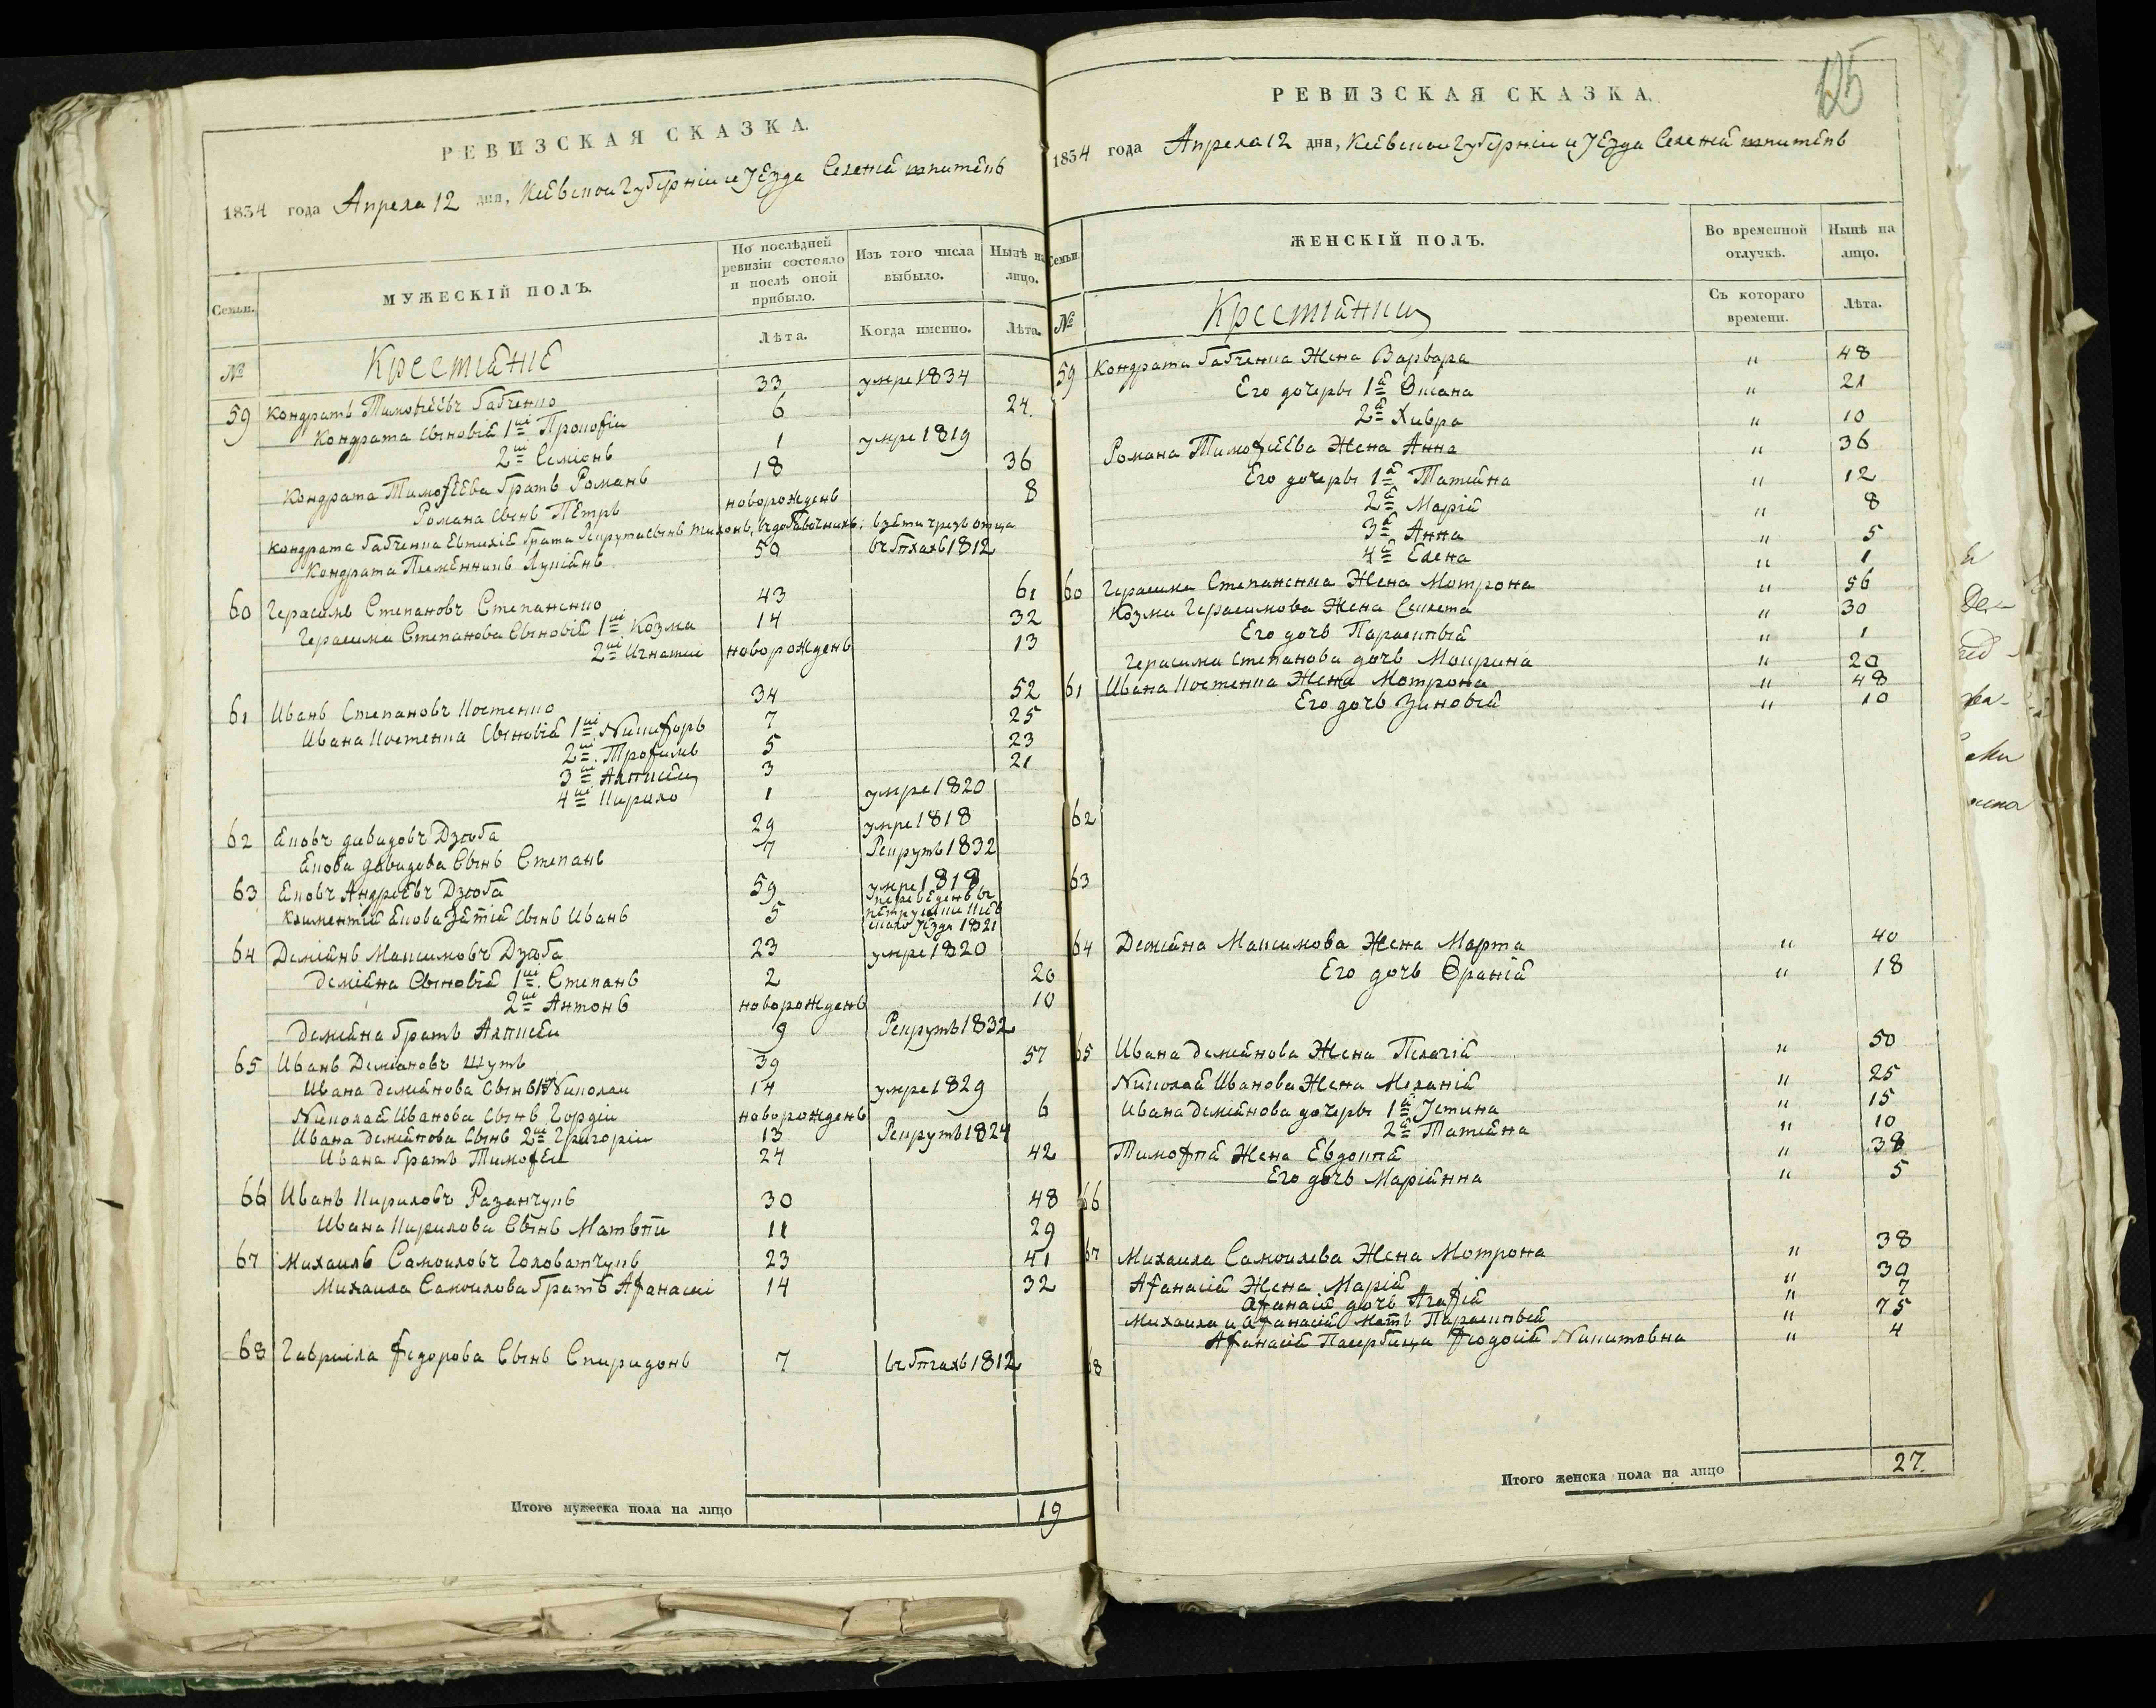 РЕВИЗСКАЯ СКАЗКА.
1834 года Апреля 12 дня, Киевской Губернии и Уезда Селения
Семьи.
МУЖЕСКІЙ ПОЛЪ.
По послѣдней ревизіи состояло и послѣ оной прибыло.
Изъ того числа выбыло.
Нынѣ на лицо.
№
Крестіяне
Лѣта.
Когда именно.
Лѣта.
59 Кондратъ Тимофеевъ Бабченко 33 умре 1834
Кондрата Сыновія 1й Прокофій 6 24.
2й Семіонъ 1 умре 1819
Кондрата Тимофеева братъ Романъ 18 36
Романа Сынъ Петръ новорожденъ 8
Кондрата Бабченка Евтихія брата Рекрута сынъ Тихонъ,
Кондрата Племенникъ Лукіянъ 50 въ бѣгахъ 1812
60 Герасимъ Степановъ Степаненко 43 61
Герасима Степанова Сыновія 1й Козма 14 32
2й Игнатій новорожденъ 13
61 Иванъ Степановъ Костенко 34 52
Ивана Костенка Сыновія 1й Никифоръ 7 25
2й Трофимъ 5 23
3й Алексей 3 21
4й Кирило 1 умре 1820
62 Яковъ Давидовъ Дзюба 29 умре 1818
Якова Давидова Сынъ Степанъ 7 Рекрутъ 1832
63 Яковъ Андреевъ Дзюба 59 умре 1818
Климентія Якова Зятія Сынъ Иванъ 5 переведенъ въ Уезда 1821
64 Деміянъ Максимовъ Дзюба 23 умре 1820
Деміяна Сыновія 1й Степанъ 2 20
2й Антонъ новорожденъ 10
Деміяна братъ Алексей 9 Рекрутъ 1832
65 Иванъ Деміановъ Шутъ 39 57
Ивана Деміянова Сынъ 1й Николай 14 умре 1829
Николая Иванова Сынъ Гордій новорожденъ 6
Ивана Деміянова Сынъ 2й Григорій 13 Рекрутъ 1824
Ивана братъ Тимофей 24 42
66 Иванъ Кириловъ Разанчукъ 30 48
Ивана Кирилова Сынъ Матвѣй 11 29
67 Михаилъ Самойловъ Головатчукъ 23 41
Михаила Самойлова братъ Афанасій 14 32
68 Гавриіла Федорова Сынъ Спиридонъ 7 въ бѣгахъ 1812
Итого мужеска пола на лицо 19
125
РЕВИЗСКАЯ СКАЗКА.
1834 года Апреля 12 дня, Киевской Губерніи и Уезда Селения
Семьи.
ЖЕНСКІЙ ПОЛЪ.
Во временной отлучкѣ.
Нынѣ на лицо.
№
Крестіянки
Съ котораго времени.
Лѣта.
59 Кондрата Бабченка Жена Варвара " 48
Его дочеры 1я Оксана " 21
2я Хивра " 10
Романа Тимофеева Жена Анна " 36
Его дочеры 1я Татіяна " 12
2я Марія " 8
3я Анна " 5
4я Елена " 1
60 Герасима Степаненка Жена Мотрона " 56
Козми Герасимова Жена " 30
Его дочь Параскевія " 1
Герасима Степанова дочь Мокрина " 20
61 Ивана Костенка Жена Мотрона " 48
Его дочь Зиновія " 10
62
63
64 Деміяна Максимова Жена Марта " 40
Его дочь " 18
65 Ивана Деміянова Жена Пелагія " 50
Николая Иванова Жена Меланія " 25
Ивана Деміянова дочеры 1я Устина " 15
2я Татіяна " 10
Тимофѣя Жена Евдокія " 38
Его дочь Маріянна " 5
66
67 Михаила Самойлова Жена Мотрона " 38
Афанасія Жена Марія " 30
Афанасія дочь Агафія " 7
Михаила и Афанасія Мать Параскевія " 75
Афанасія Пасербица Феодосія Никитовна " 4
68
Итого женска пола на лицо 27.